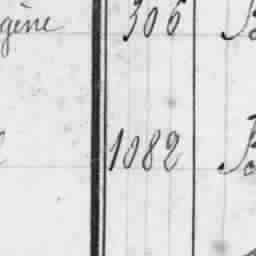 gène 306
1082